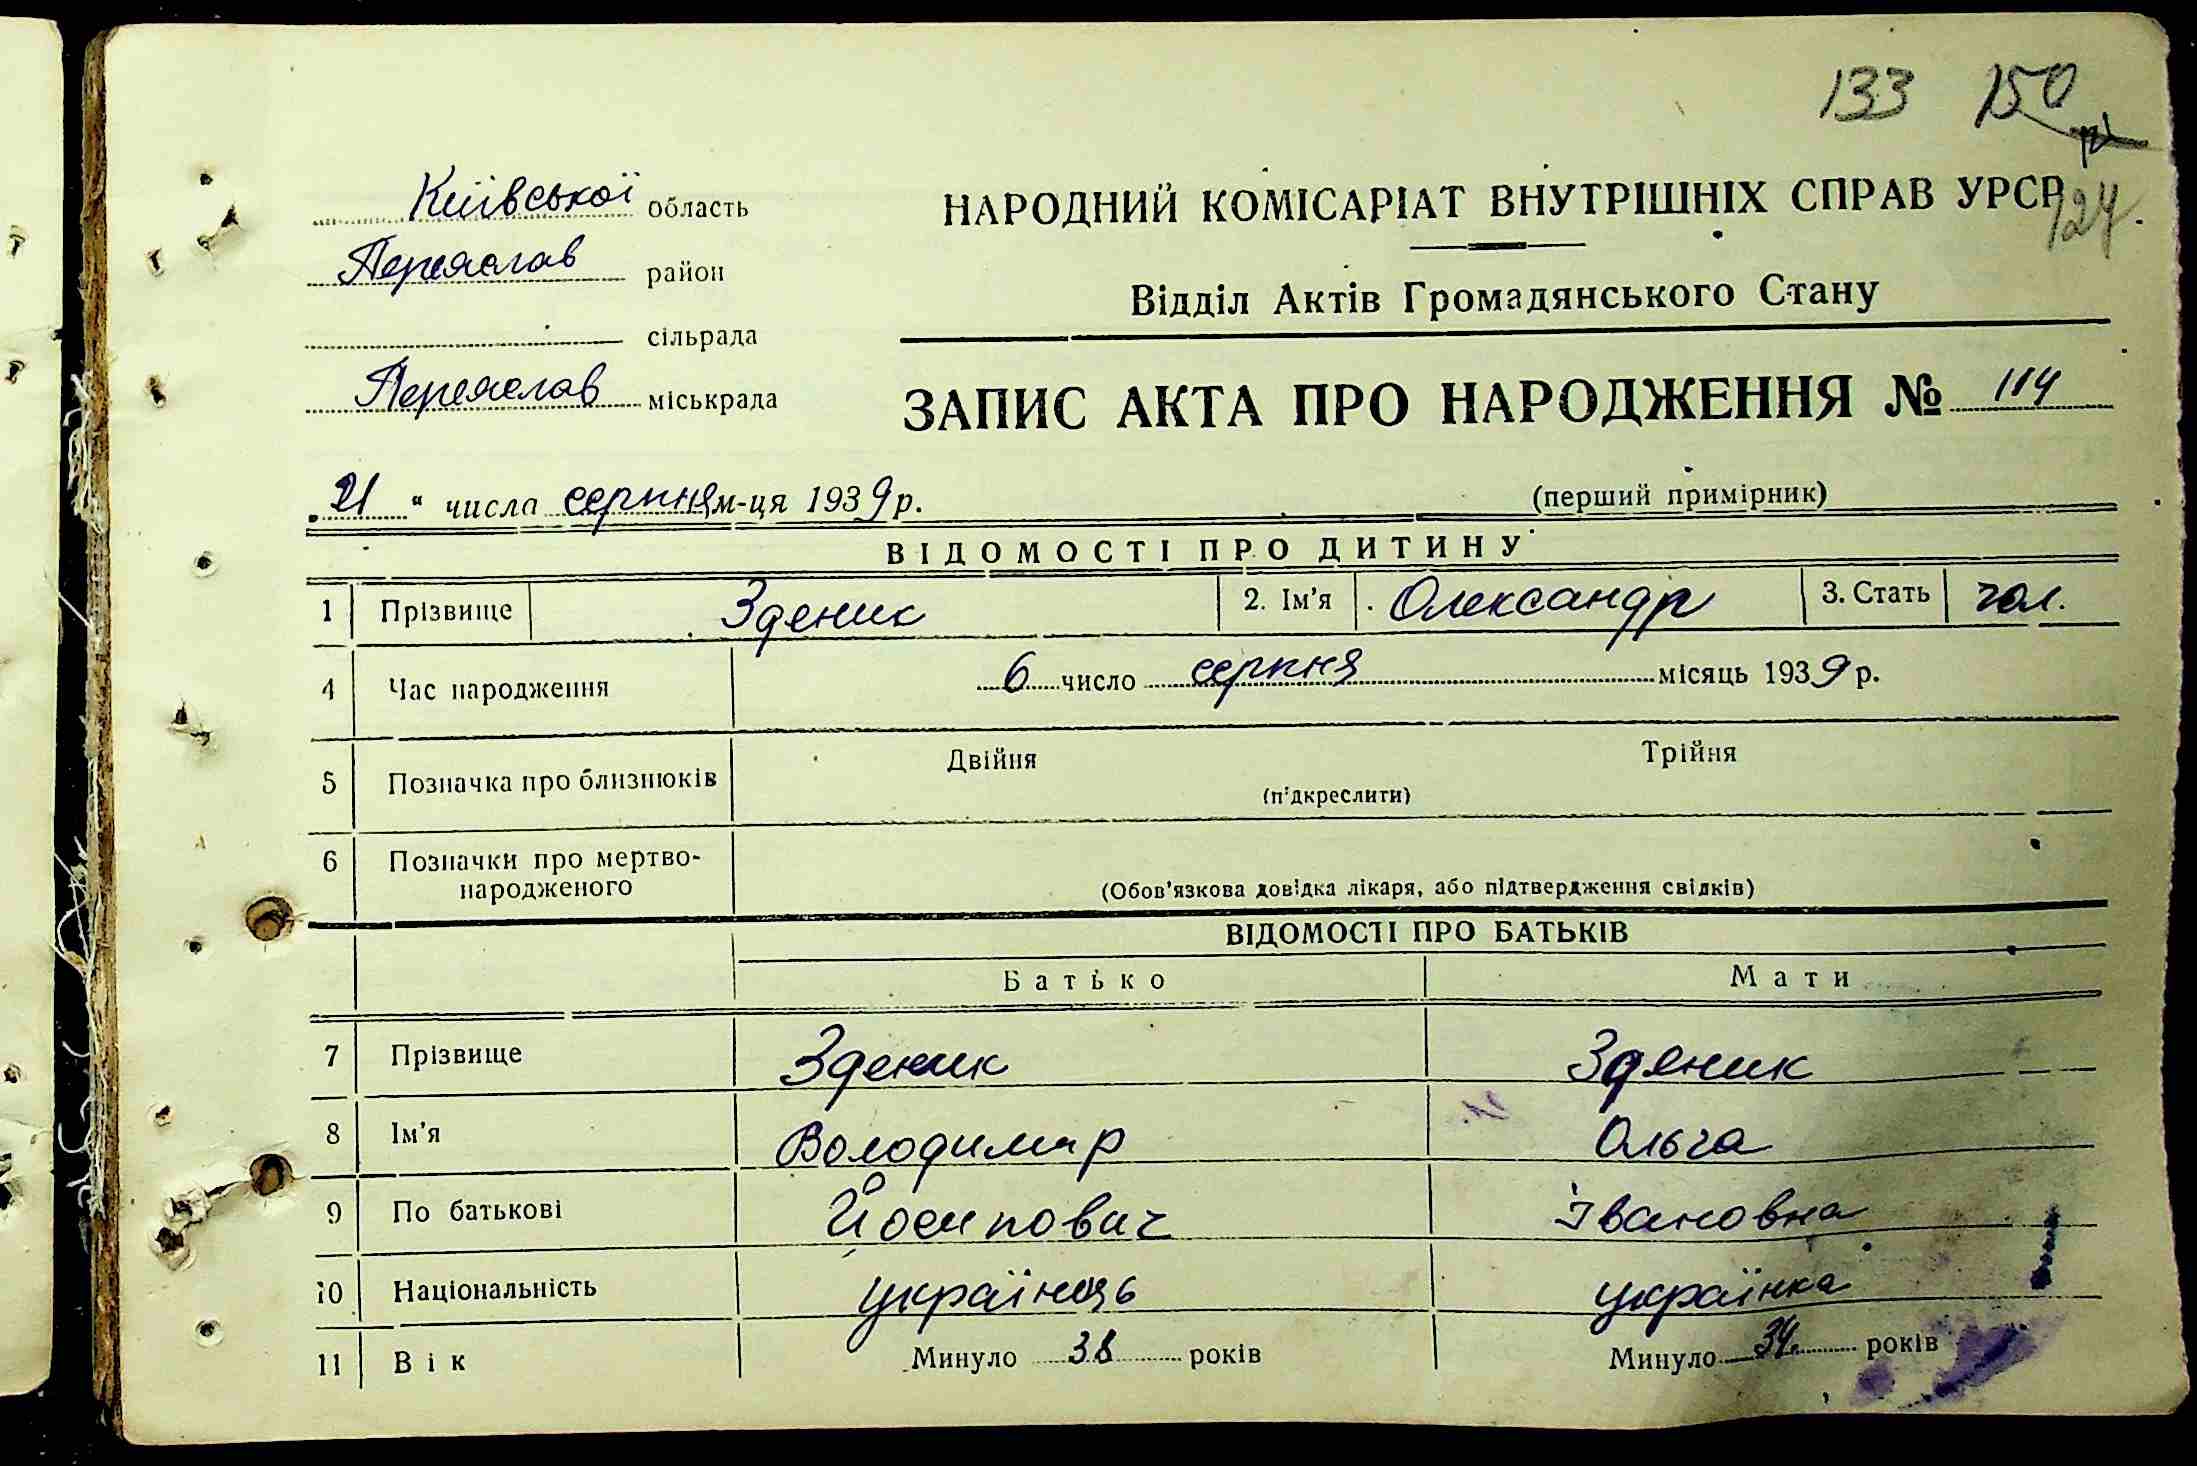 133 150
Київської область
НАРОДНИЙ КОМІСАРІАТ ВНУТРІШНІХ СПРАВ УРСР
124.
Переяслав район
Відділ Актів Громадянського Стану
сільрада
Переяслав міськрада
ЗАПИС АКТА ПРО НАРОДЖЕННЯ № 114
„21“ числа серпня м-ця 1939 р.
(перший примірник)
ВІДОМОСТІ ПРО ДИТИНУ
1 Прізвище Зденик 2. Ім'я Олександр 3. Стать чол.
4 Час народження 6 число серпня місяць 1939 р.
5 Позначка про близнюків Двійня Трійня
(підкреслити)
6 Позначки про мертво-
народженого
(Обов'язкова довідка лікаря, або підтвердження свідків)
ВІДОМОСТІ ПРО БАТЬКІВ
Батько Мати
7 Прізвище Зденик Зденик
8 Ім'я Володимир Ольга
9 По батькові Йосипович Івановна
10 Національність українець українка
11 Вік Минуло 38 років Минуло 34 років